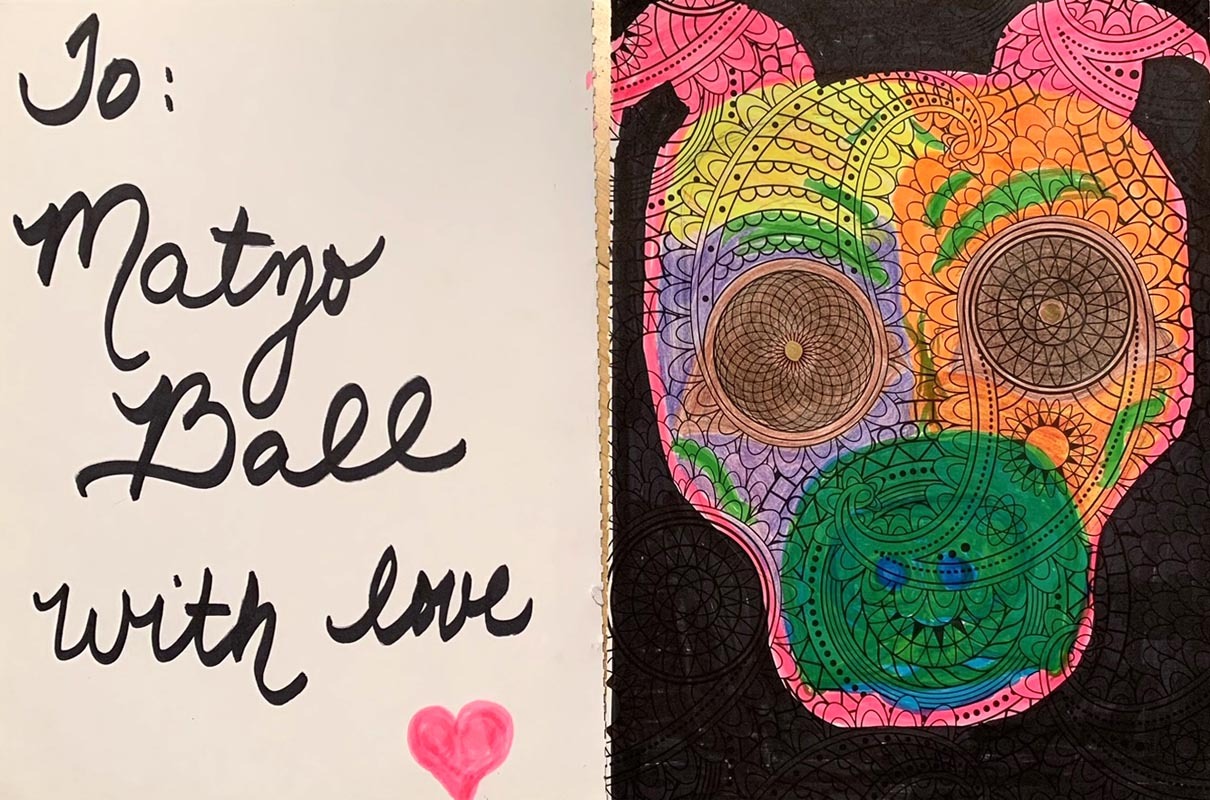 To:
Matzo
Ball
with love